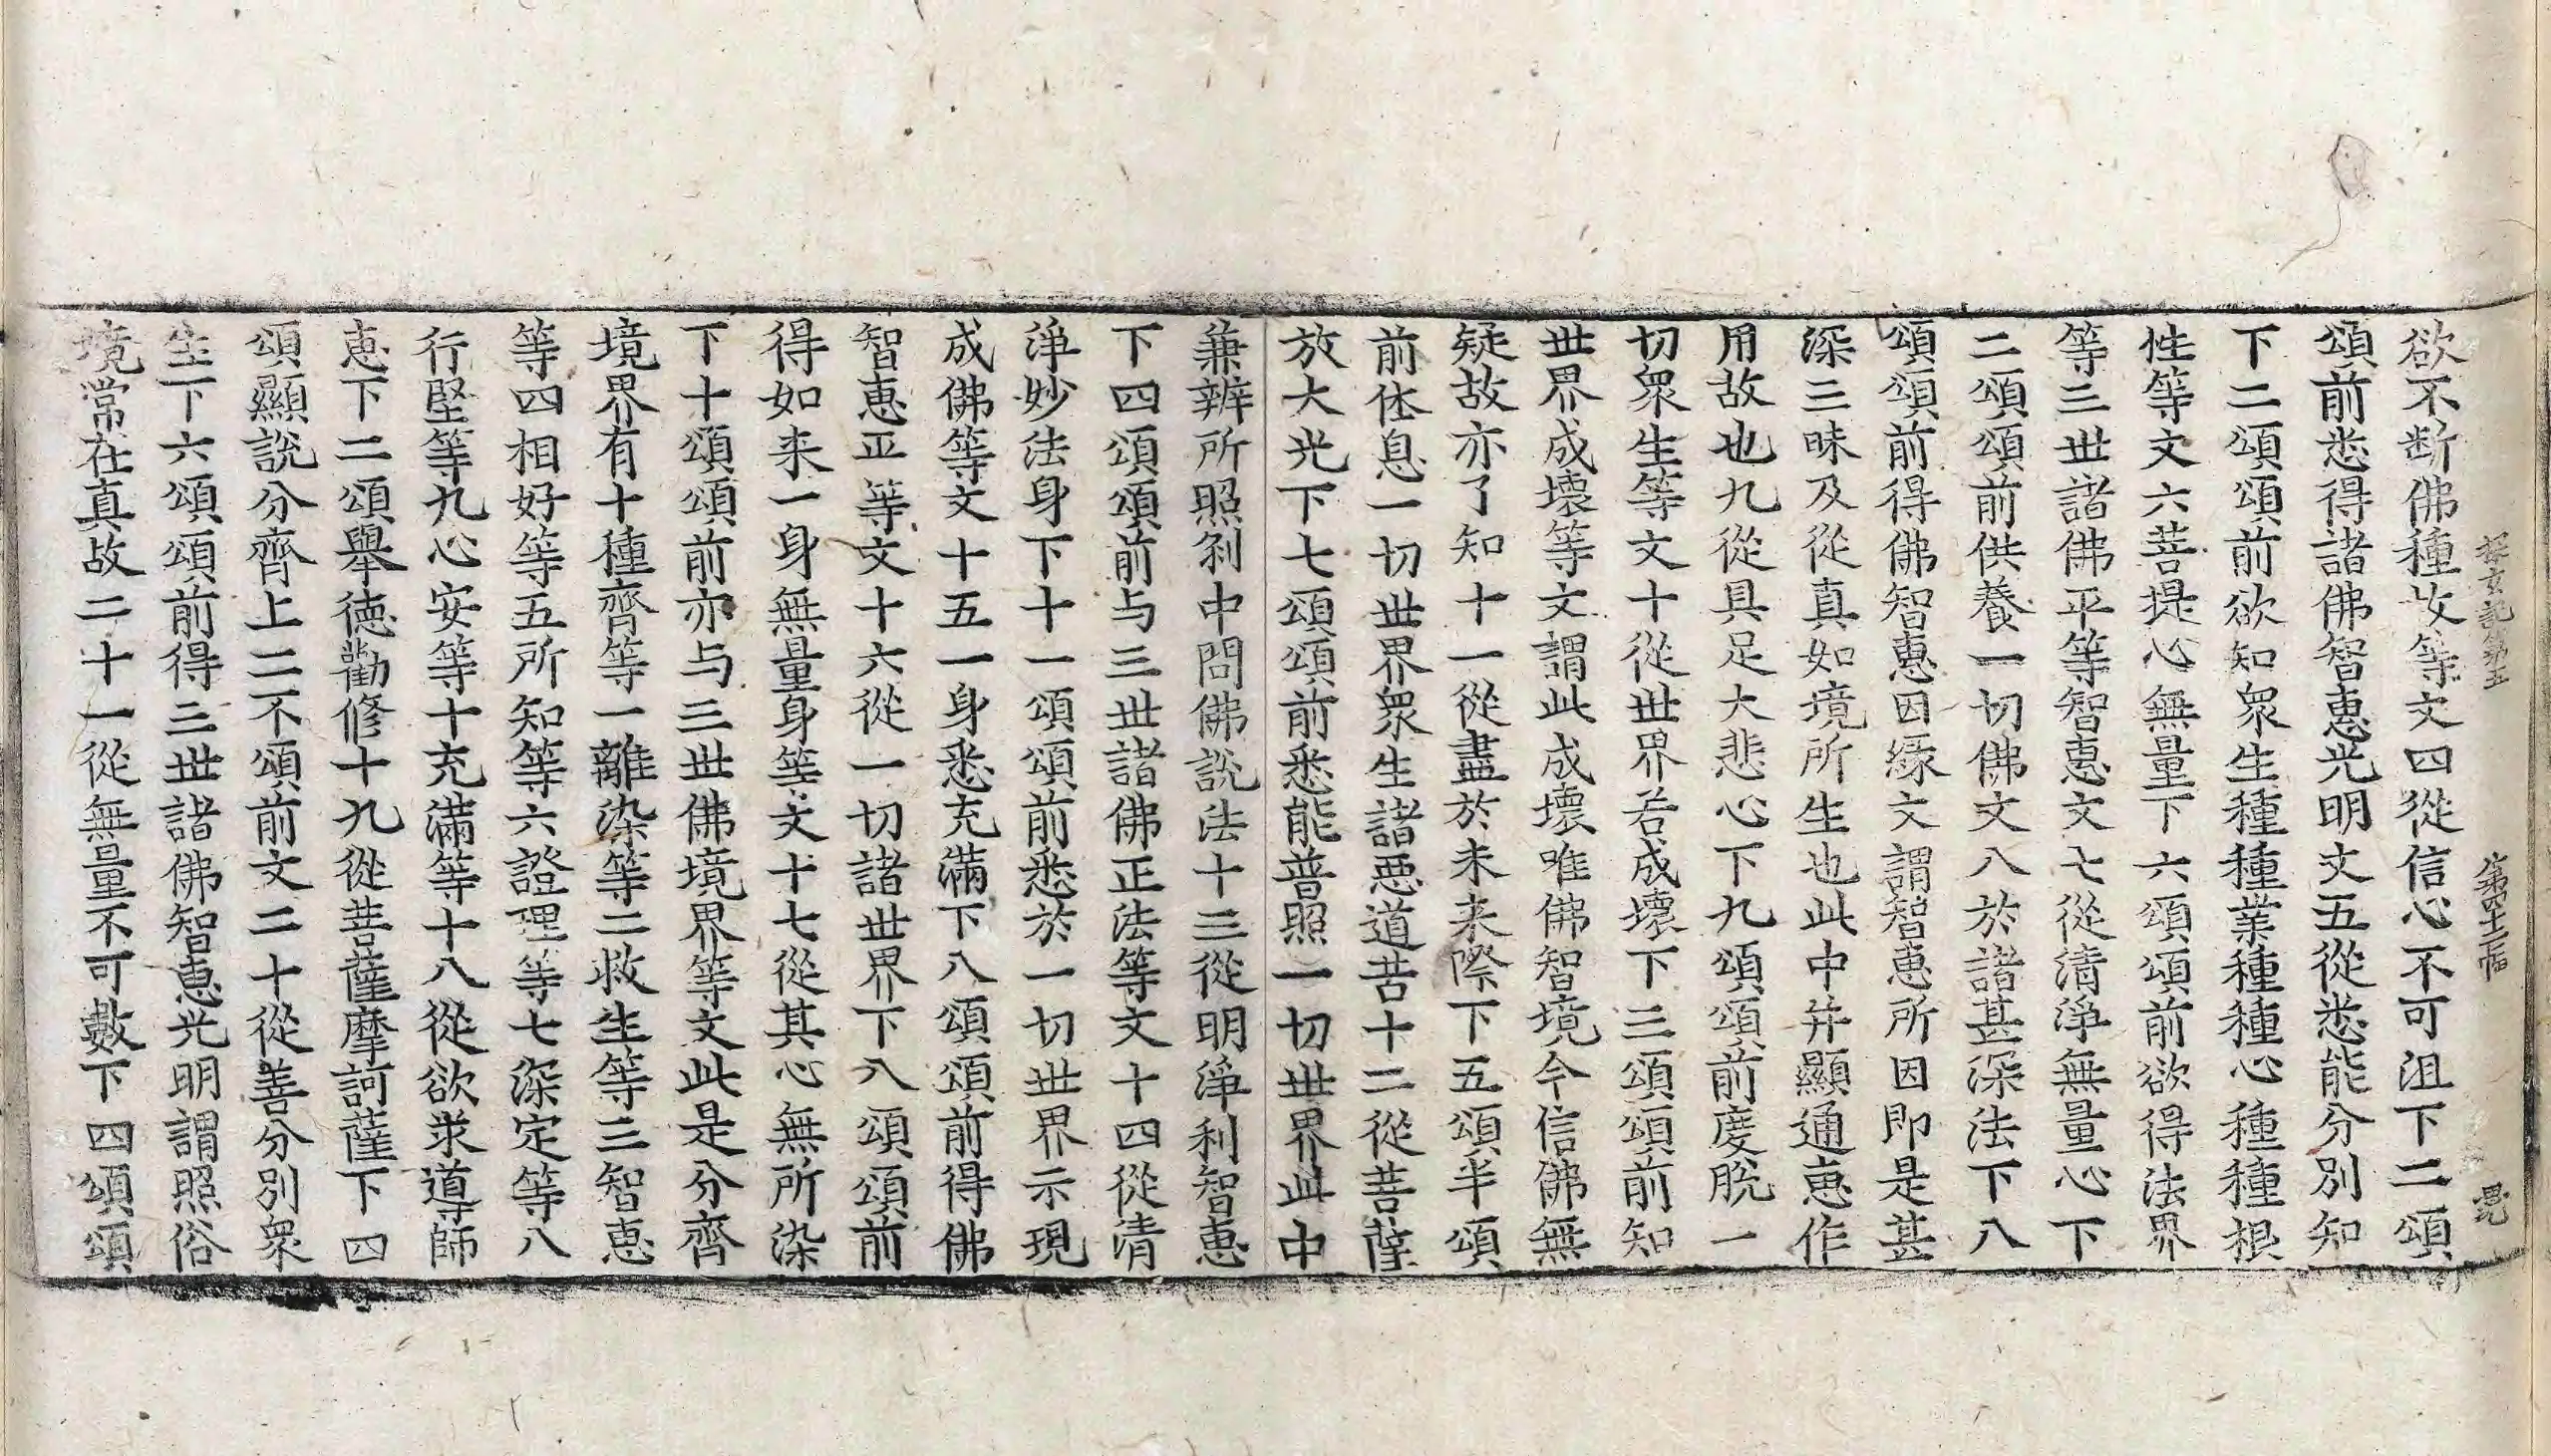 探玄記第五 第四十二幅
欲不断佛種故等文四從信心不可沮下二頌
頌前悉得諸佛智惠光明文五從悉能分別知
下二頌頌前欲知衆生種種業種種心種種根
性等文六菩提心無量下六頌頌前欲得法界
等三世諸佛平等智惠文七從清淨無量心下
二頌頌前供養一切佛文八於諸甚深法下八
頌頌前得佛智惠因縁文謂智惠所因即是甚
深三昧及從真如境所生也此中并顯通惠作
用故也九從具足大悲心下九頌頌前度脱一
切衆生等文十從世界若成壞下三頌頌前知
世界成壞等文謂此成壞唯佛智境今信佛無
疑故亦了知十一從盡於未来際下五頌半頌
前休息一切世界衆生諸惡道苦十二從菩薩
放大光下七頌頌前悉能普照一切世界此中
兼辨所照刹中問佛說法十三從明淨利智惠
下四頌頌前与三世諸佛正法等文十四從清
淨妙法身下十一頌頌前悉於一切世界示現
成佛等文十五一身悉充滿下八頌頌前得佛
智惠正等文十六從一切諸世界下八頌頌前
得如来一身無量身等文十七從其心無所染
下十頌頌前亦与三世佛境界等文此是分齊
境界有十種齊等一離染等二救生等三智惠
等四相好等五所知等六證理等七深定等八
行堅等九心安等十充滿等十八從欲求導師
恵下二頌舉德勸修十九從菩薩摩訶薩下四
頌顯說分齊上二不頌前文二十從善分別衆
生下六頌頌前得三世諸佛智惠光明謂照俗
境常在真故二十一從無量不可數下四頌頌